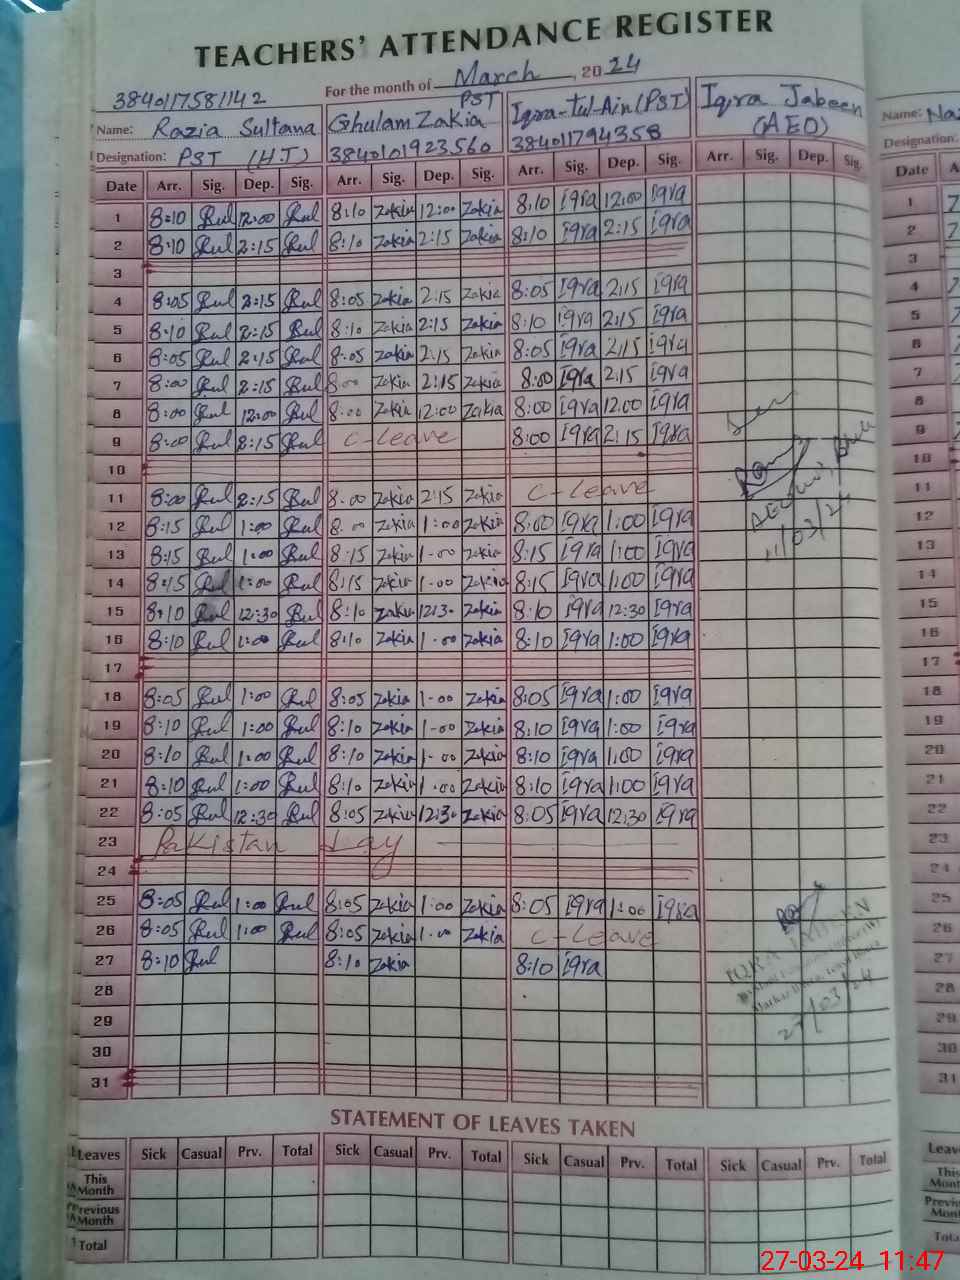 TEACHERS' ATTENDANCE REGISTER
For the month of March, 2024
3840117581142
Name: Razia Sultana
Designation: PST (H.T)
Ghulam Zakia PST
3840101923560
Iqra-tul-Ain (PST)
384011794358
Iqra Jabeen
(AEO)
Date Arr. Sig. Dep. Sig. Arr. Sig. Dep. Sig. Arr. Sig. Dep. Sig. Arr. Sig. Dep. Sig.
1 8:10 12:00 8:10 Zakia 12:00 Zakia 8:10 Iqra 12:00 Iqra
2 8:10 2:15 8:10 Zakia 2:15 Zakia 8:10 Iqra 2:15 Iqra
3
4 8:05 2:15 8:05 Zakia 2:15 Zakia 8:05 Iqra 2:15 Iqra
5 8:10 2:15 8:10 Zakia 2:15 Zakia 8:10 Iqra 2:15 Iqra
6 8:05 2:15 8:05 Zakia 2:15 Zakia 8:05 Iqra 2:15 Iqra
7 8:00 2:15 8:00 Zakia 2:15 Zakia 8:00 Iqra 2:15 Iqra
8 8:00 12:00 8:00 Zakia 12:00 Zakia 8:00 Iqra 12:00 Iqra
9 8:00 2:15 C-Leave 8:00 Iqra 2:15 Iqra
10
11 8:00 2:15 8:00 Zakia 2:15 Zakia C-Leave
12 8:15 1:00 8:00 Zakia 1:00 Zakia 8:00 Iqra 1:00 Iqra
13 8:15 1:00 8:15 Zakia 1-00 Zakia 8:15 Iqra 1:00 Iqra
14 8:15 1:00 8:15 Zakia 1-00 Zakia 8:15 Iqra 1:00 Iqra
15 8:10 12:30 8:10 Zakia 12:30 Zakia 8:10 Iqra 12:30 Iqra
16 8:10 1:00 8:10 Zakia 1-00 Zakia 8:10 Iqra 1:00 Iqra
17
18 8:05 1:00 8:05 Zakia 1-00 Zakia 8:05 Iqra 1:00 Iqra
19 8:10 1:00 8:10 Zakia 1-00 Zakia 8:10 Iqra 1:00 Iqra
20 8:10 1:00 8:10 Zakia 1-00 Zakia 8:10 Iqra 1:00 Iqra
21 8:10 1:00 8:10 Zakia 1-00 Zakia 8:10 Iqra 1:00 Iqra
22 8:05 12:30 8:05 Zakia 12:30 Zakia 8:05 Iqra 12:30 Iqra
23 Pakistan Day
24
25 8:05 1:00 8:05 Zakia 1:00 Zakia 8:05 Iqra 1:00 Iqra
26 8:05 1:00 8:05 Zakia 1-00 Zakia C-Leave
27 8:10 8:10 Zakia 8:10 Iqra
28
29
30
31
11/03/24
IQRA JABEEN
27/03/24
STATEMENT OF LEAVES TAKEN
Leaves Sick Casual Prv. Total Sick Casual Prv. Total Sick Casual Prv. Total Sick Casual Prv. Total
This Month
Previous Month
Total
Name:
Designation:
Date
1
2
3
4
5
6
7
8
9
10
11
12
13
14
15
16
17
18
19
20
21
22
23
24
25
26
27
28
29
30
31
27-03-24 11:47